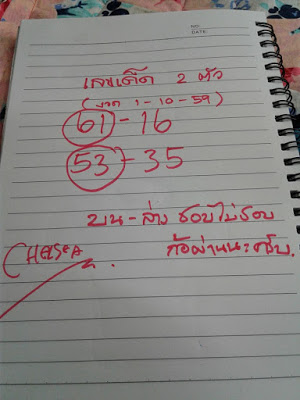 DATE
เลขเด็ด 2 ตัว
(งวด 1-10-59)
61-16
53-35
บน-ล่าง ชอบไม่ชอบ
ก้อผ่านนะครับ.
CHELSEA